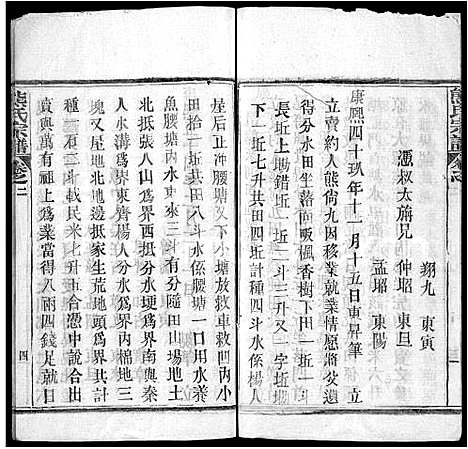 翔九 東寅
憑叔太旃兄 仲昭 東旦
孟昭 東陽
康熙四十玖年十一月十五日東昇筆 立
立賣約人熊尙九因移業就業情愿將
得分水田坐落面吸楓香樹丁田一坵一斗
長坵上塅錯坵一坵二斗三升又一字坵塅
下一坵七升共田四坵計種四斗水係楊人
屋后正冲腰塘又下小塘放救車救凹內小
田拾一坵共田八斗水係腰塘一口用水養
魚腰塘內水車來三斗有分隨田山塲地土
北抵張人山爲界西抵熊人分水埂爲界南與秦
人水溝爲界東齊楊人分水爲界內棉地三
塊又屋地北地邊抵家生荒地頭爲界田
種一石二斗載民米七升五合憑中說合出
賣與萬有祖上爲業當得八兩四錢足就日
熊氏宗譜 卷之二
四
熊氏宗譜